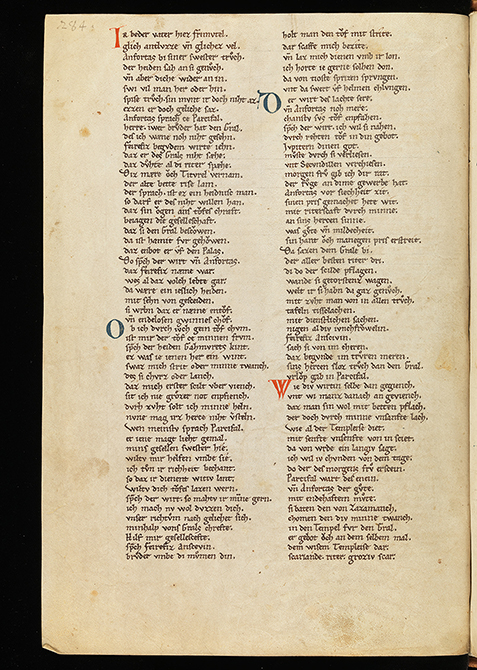 284
Ir beder vater hiez frimvtel.
glich antlvzze vn glicher vel.
Anfortas bi siner swester trvch.
der heiden sah an si genvch.
vn aber dicke wider an in.
swi vil man her oder hin.
spise trvch. sin mvnt ir doch niht az.
ezzen er doch geliche saz.
Anfortas sprach ze Parcifal.
herre. iwer brvder hat den Gral.
des ich wæne noch niht gesehn.
feirefiz begvndem wirte iehn.
daz er des grals niht sæhe.
daz dvhte al di riter spæhe.
Diz mære och Titvrel vernam.
der alte bette rise lam.
der sprach. ist ez ein heidnisc man.
so darf er des niht willen han.
daz sin ogen ans tofes chraft.
beiagen die geselleschaft.
daz si den Gral beschowen.
da ist hamit fvr gehowen.
daz enbot er vf den Palas.
Do sprch der wirt vn Anfortas.
daz feirefiz næme war.
wes al daz volch lebte gar.
da wære ein ieslich heiden.
mit sehn von gescheiden.
si wrbn daz er næme entof.
vn endelosen gewinnes chof.
Ob ich dvrch iwch zem tof chvm.
ist mir der tof ze minnen frvm.
sprch der heiden Gahmvretes kint.
ez was ie ienen her ein wint.
swaz mich strit oder minne twanch.
des si chvrz oder lanch.
daz mich erster scilt vber viench.
sit ich nie grozer not enpfiench.
dvrh zvht solt ich minne heln.
nvne mag irz herze niht versteln.
wen meinstv sprach Parcifal.
et iene magt lieht gemal.
mins gesellen swester hie.
wiltv mir helfen vmbe sie.
ich tvn ir richheit bechant.
so daz ir dienent witiv lant.
wiltv dich tofes lazen wern.
sprch der wirt. so mahtv ir minne gern.
ich mach nv wol dvzzen dich.
vnser richtvm nach gelichet sich.
minhalp vons Grals chrefte.
Hilf mir geselleschefte.
sprch feirefiz Anscevin.
brvder vmbe di mvmen din.
holt man den tof mit strite.
dar scaffe mich bezite.
vn laz mich dienen vmb ir lon.
ich horte ie gerne solhen don.
da von tiost sprizen sprvngen.
vnt da swert vf helmen chlvngen.
Der wirt des lachte sere.
vn Anfortas noch mere.
chanstv svs tof enpfahen.
sprch der wirt. ich wil si nahen.
dvrch rehten tof in din gebot.
Jvpitern dinen got.
mvstv dvrch si verliesen.
vnt Secvndillen verchiesen.
morgen frv gib ich dir rat.
der fvge an dime gewerbe hat.
Anfortas vor siechheit zit.
sinen pris gemachet hete wit.
mit riterschaft dvrch minne.
an sins hercen sinne.
was gvte vn mildecheit.
sin hant och manegen pris erstreit.
Da sazen dem Grale bi.
der aller besten riter dri.
di do der scilde pflagen.
wande si getorstenz wagen.
welt ir si habn da gaz genvch.
mit zvht man von in allen trvch.
tafeln tisslachen.
mit dienstlichen sachen.
nigen al div ivnchfrowelin.
feirefiz Anscevin.
sach si von im cheren.
daz begvnde im trvren meren.
sins hercen sloz trvch dan den Gral.
vrlop gab in Parcifal.
Wie div wirtin selbe dan gegiench.
vnt wi manz danach an gevierch.
daz man sin wol mit betten pflach.
der doch dvrch minne vnsanfte lach.
wie al der Templeise diet.
mit senfte vnsenfte von in sciet.
da von wrde ein langiv sage.
ich wil iv chvnden von dem tage.
do der des morgens frv erscein.
Parcifal wart des enein.
vn Anfortas der gvte.
mit endehaftem mvte.
si baten den von Zazamanch.
chomen den div minne twanch.
in den Tempel fvr den Gral.
er gebot och an dem selbem mal.
dem wisem Templeise dar.
scariande. riter. groziv scar.